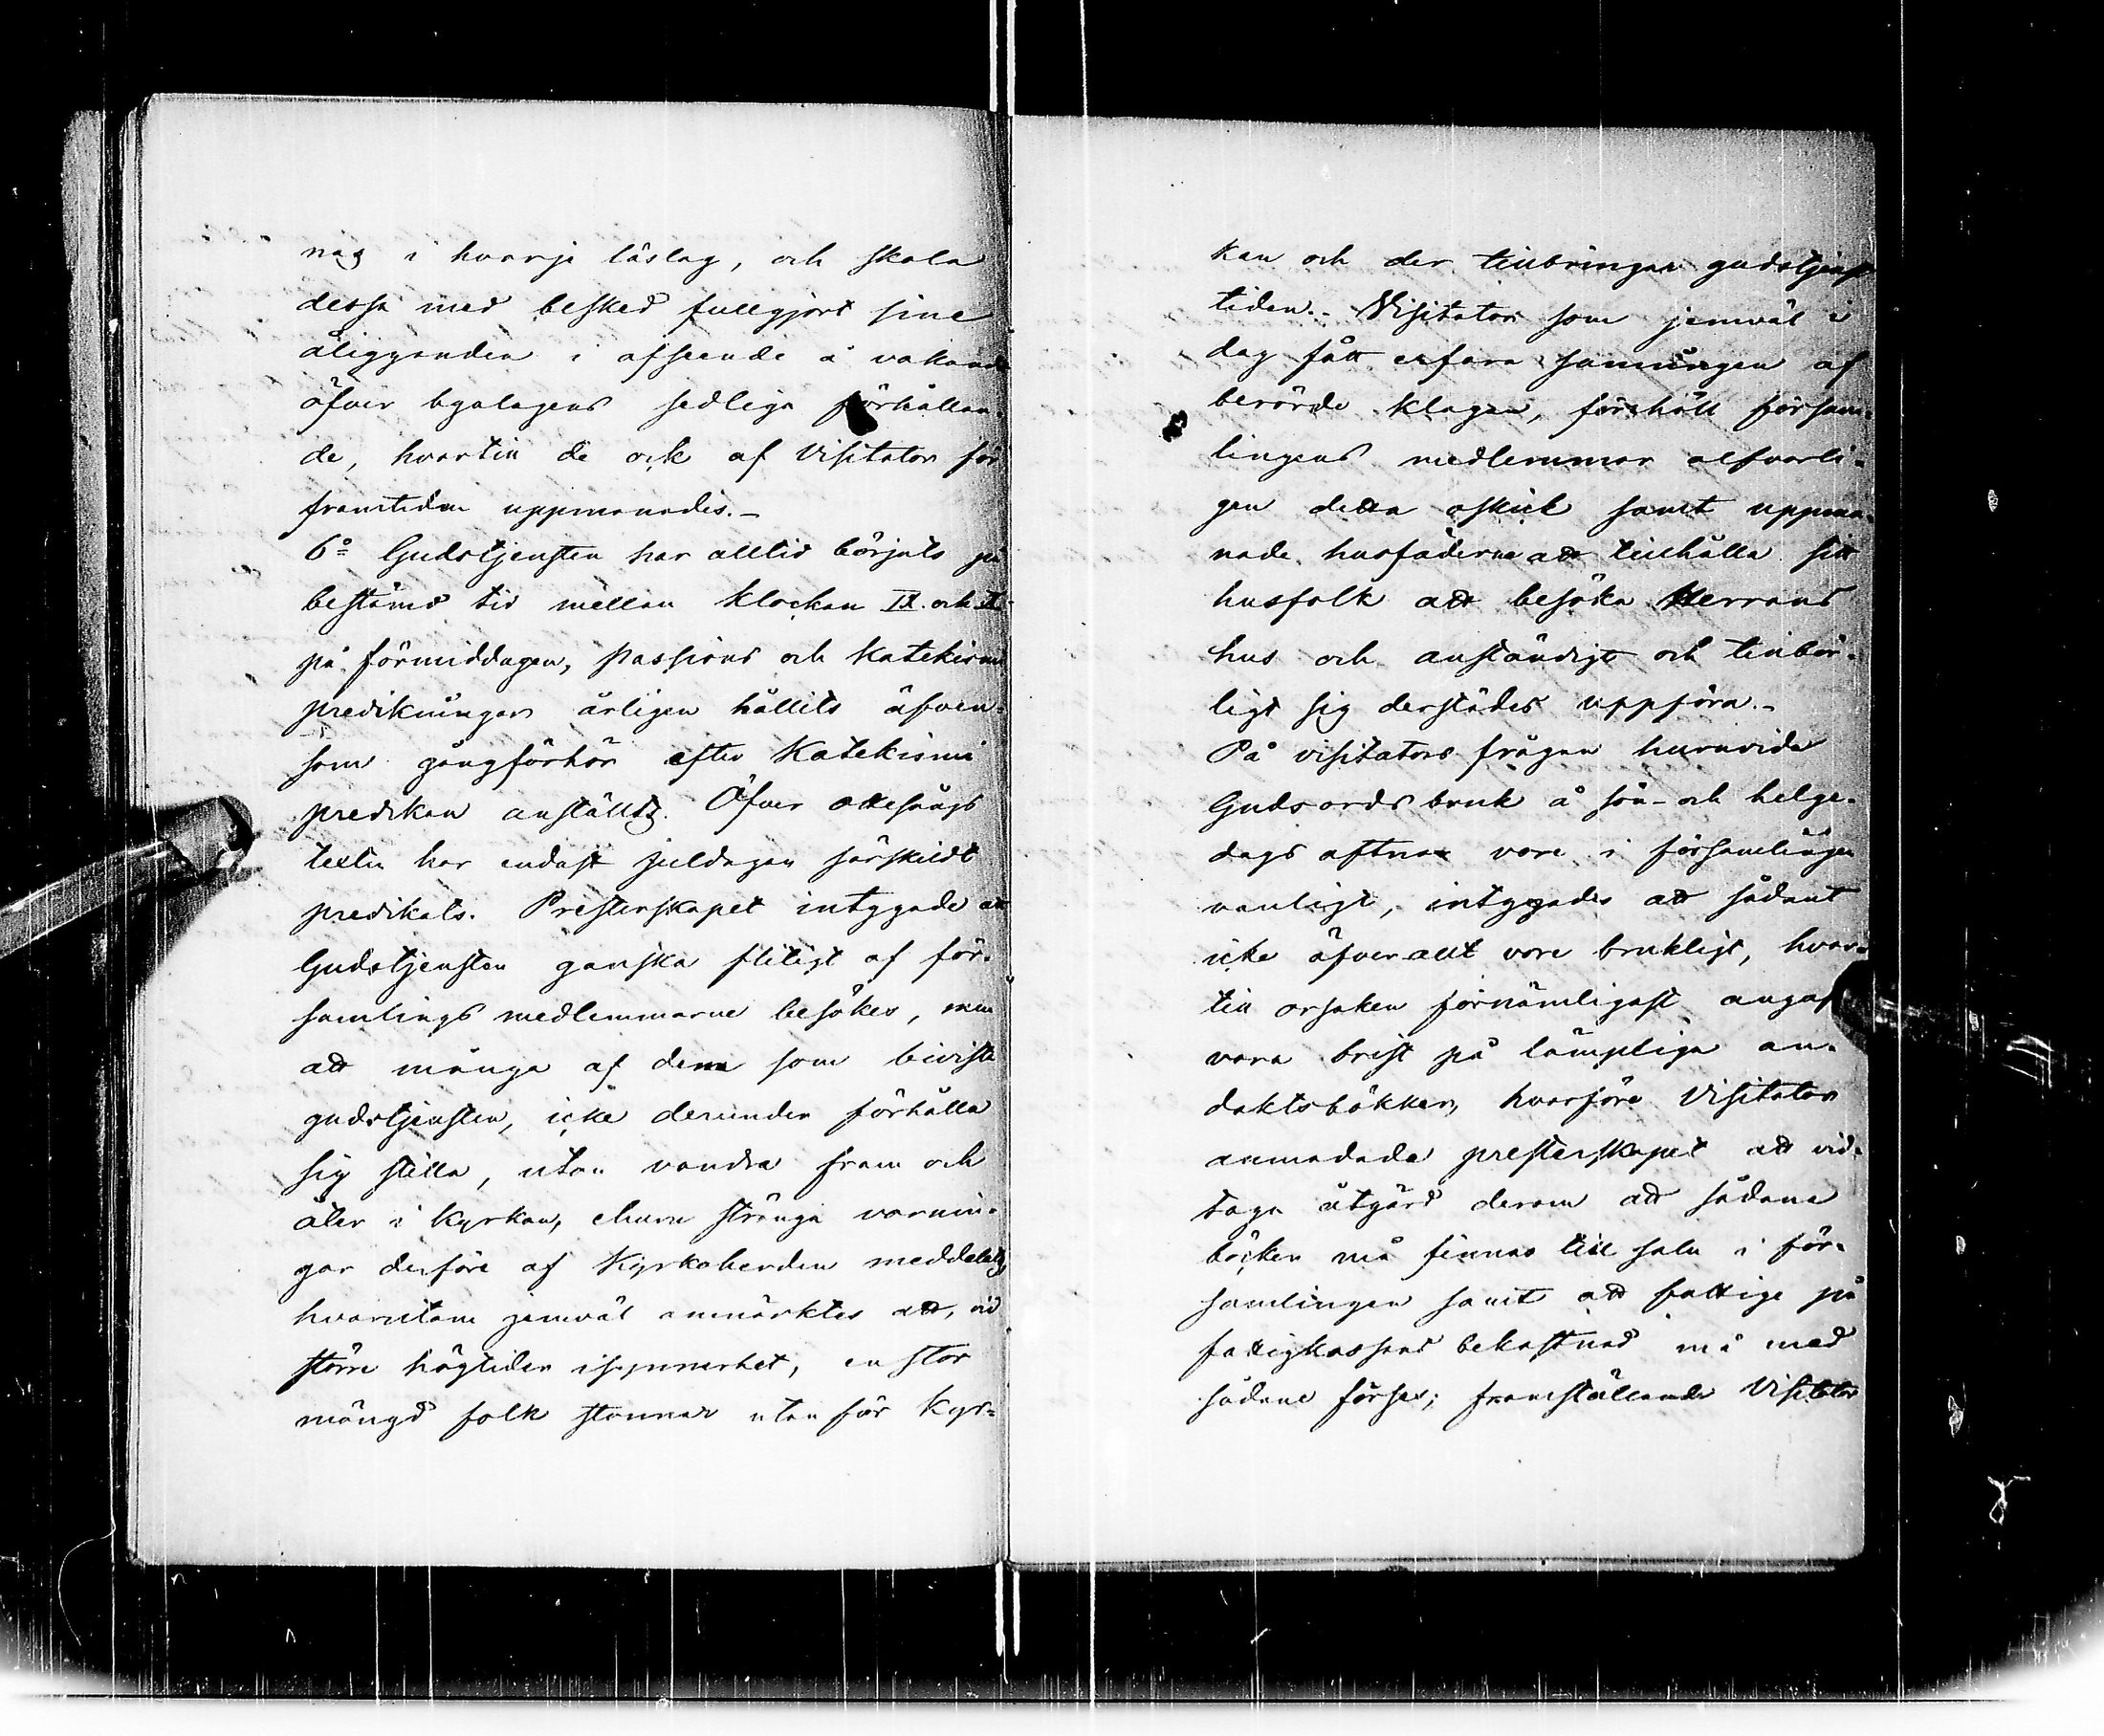 nas i hvarje läslag, och skola
dessa med besked fullgjort sine
åligganden i afseende å vakande
öfver byalagens sedliga förhållan-
de, hvartill de ock af Visitator för
framtiden uppmanades.-
6º Gudstjensten har alltid börjats på
bestämd tid mellan klockan IX och X
på förmiddagen, Passions och Katekismi
predikningar årligen hållits äfven-
som gångförhör efter Katekismi
predikan anställts. Öfver ottesångs
texter har endast juldagen särskildt
predikats. Presterskapet intygade att
Gudstjensten ganska flitigt af för-
samlings medlemmarne besökes, men
att många af dem som bivista
gudstjensten, icke derunder förhålla
sig stilla, utan vandra fram och
åter i kyrkan, ehuru stränga varnin-
gar derföre af Kyrkoherden meddelats,
hvarutom jemväl anmärktes att, vid
större högtider isynnerhet, en stor
mängd folk stannar utan för Kyr-
kan och der tillbringar gudstjenst
tiden.- Visitator som jemväl i
dag fått erfara sanningen af
berörde klagan, förehöll försam-
lingens medlemmar alfvarli-
gen detta oskick samt uppma-
nade husfäderne att tillhålla sitt
husfolk att besöka Herrans
hus och anständigt och tillbör-
ligt sig derstädes uppföra.-
På visitators frågan huruvida
Guds ords bruk å sön- och helge-
dags aftnar vore i församlingen
vanligt, intygades att sådant
icke öfverallt vore brukligt, hvar-
till orsaken förnämligast angafs
vara brist på lämpliga an-
daktsböcker, hvarföre Visitator
anmodade presterskapet att vid-
taga åtgärd derom att sådana
böcker må finnas till salu i för-
samlingen samt att fattige på
fattigkassans bekostnad må med
sådane förses; framställande Visitator